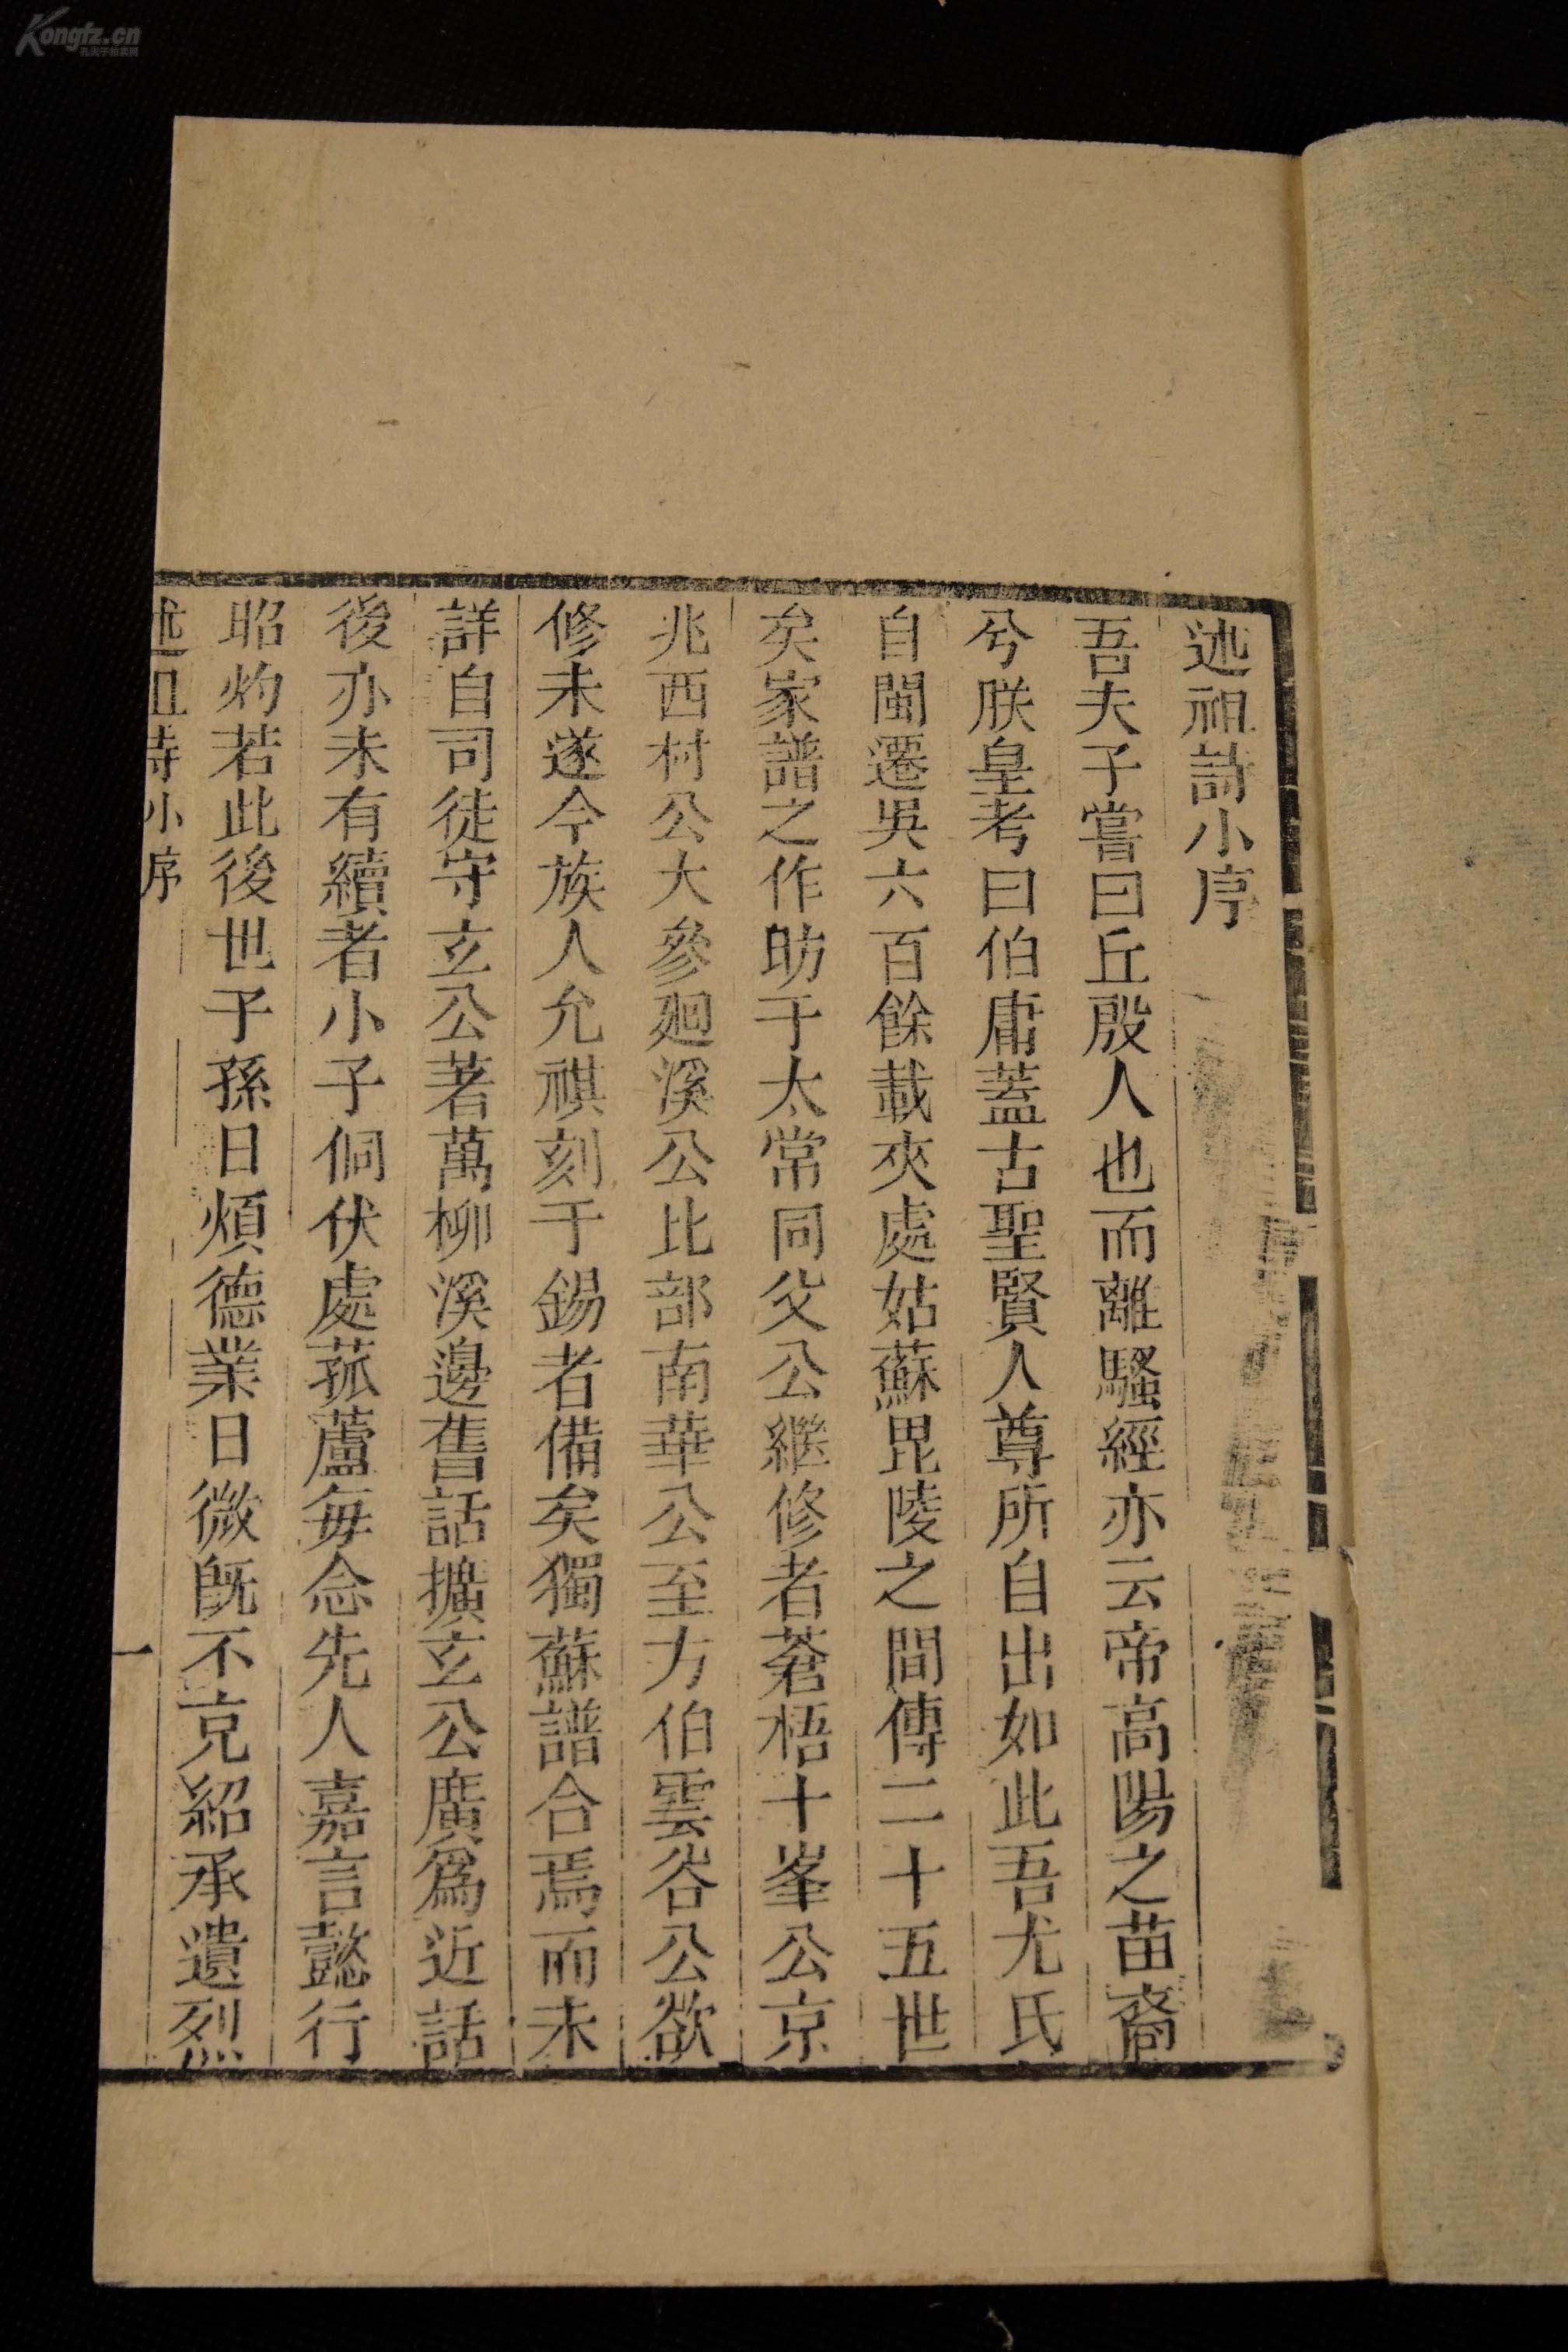 述祖詩小序
吾夫子嘗曰丘殷人也而離騷經亦云帝高陽之苗裔
兮朕皇考曰伯庸蓋古聖賢人尊所自出如此吾尤氏
自閩遷吳六百餘載夾處姑蘇毘陵之間傳二十五世
矣家譜之作昉于太常同父公繼修者蒼梧十峯公京
兆西村公大參廻溪公比部南華公至方伯雲谷公欲
修未遂今族人允祺刻于錫者備矣獨蘇譜合焉而未
詳自司徒守玄公著萬柳溪邊舊話擴玄公廣為近話
後亦未有續者小子侗伏處菰蘆每念先人嘉言懿行
昭灼若此後世子孫日煩德業日微旣不克紹承遺烈
述祖詩小序
一
Kongfz.cn